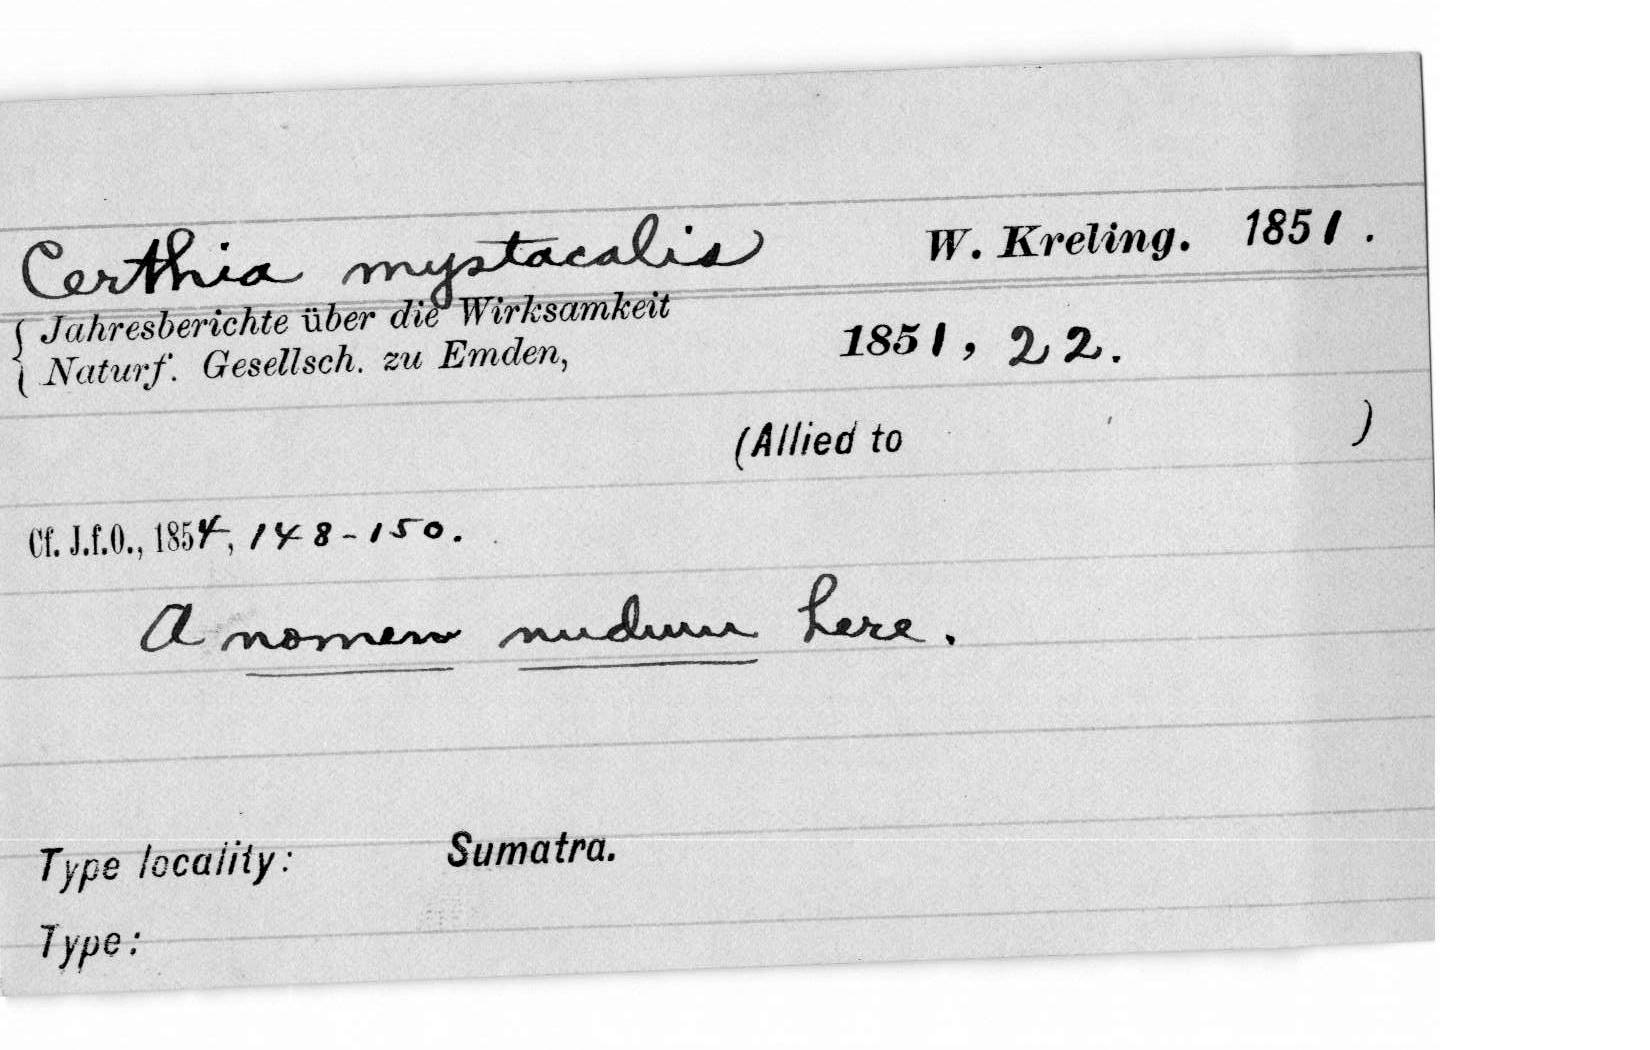 Certhia mystacalis W. Kreling. 1851.
Jahresberichte über die Wirksamkeit
Naturf. Gesellsch. zu Emden, 1851, 22.
(Allied to )
Cf. J.f.O., 1854, 148-150.
A nomen nudum here.
Type locality: Sumatra.
Type: